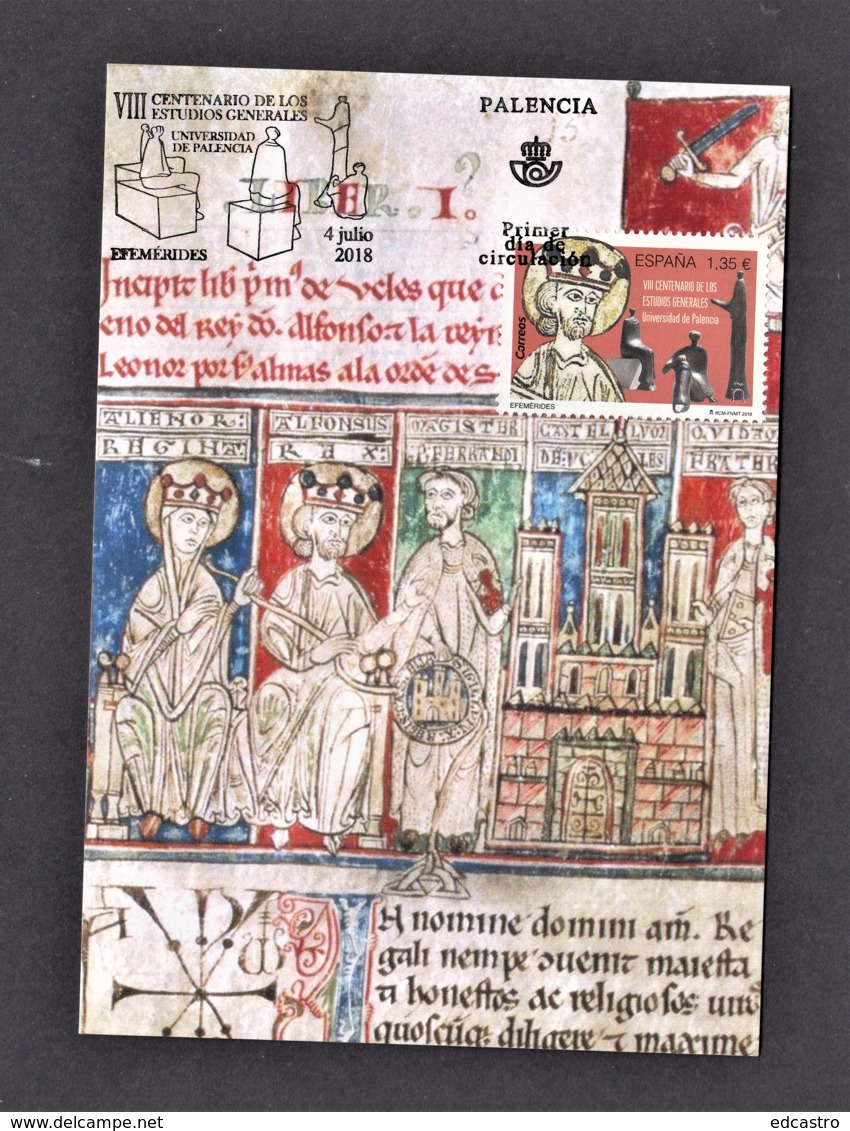 VIII CENTENARIO DE LOS
ESTUDIOS GENERALES
UNIVERSIDAD
DE PALENCIA
EFEMÉRIDES
4 julio
2018
PALENCIA
Primer
día de
circulación
ESPAÑA 1,35 €
VIII CENTENARIO DE LOS
ESTUDIOS GENERALES
Universidad de Palencia
Correos
EFEMÉRIDES
RCM-FNMT 2018
LIBER. I.
Incipit lib p̃m⁹ de Vcles que
eno del Rey dõ Alfonso ⁊ la reyn
Leonor por sˢ almas a la ordẽ de S
ALIENOR: ALFONSUS MAGISTER
REGINA: REX: P. FERRANDI
FRATER
IN nomine domini am̃. Re
gali nempe ɔuenit maiesta
ti honestos ac religiosos uiros
quoscũq; diligere ⁊ maxime
edcastro